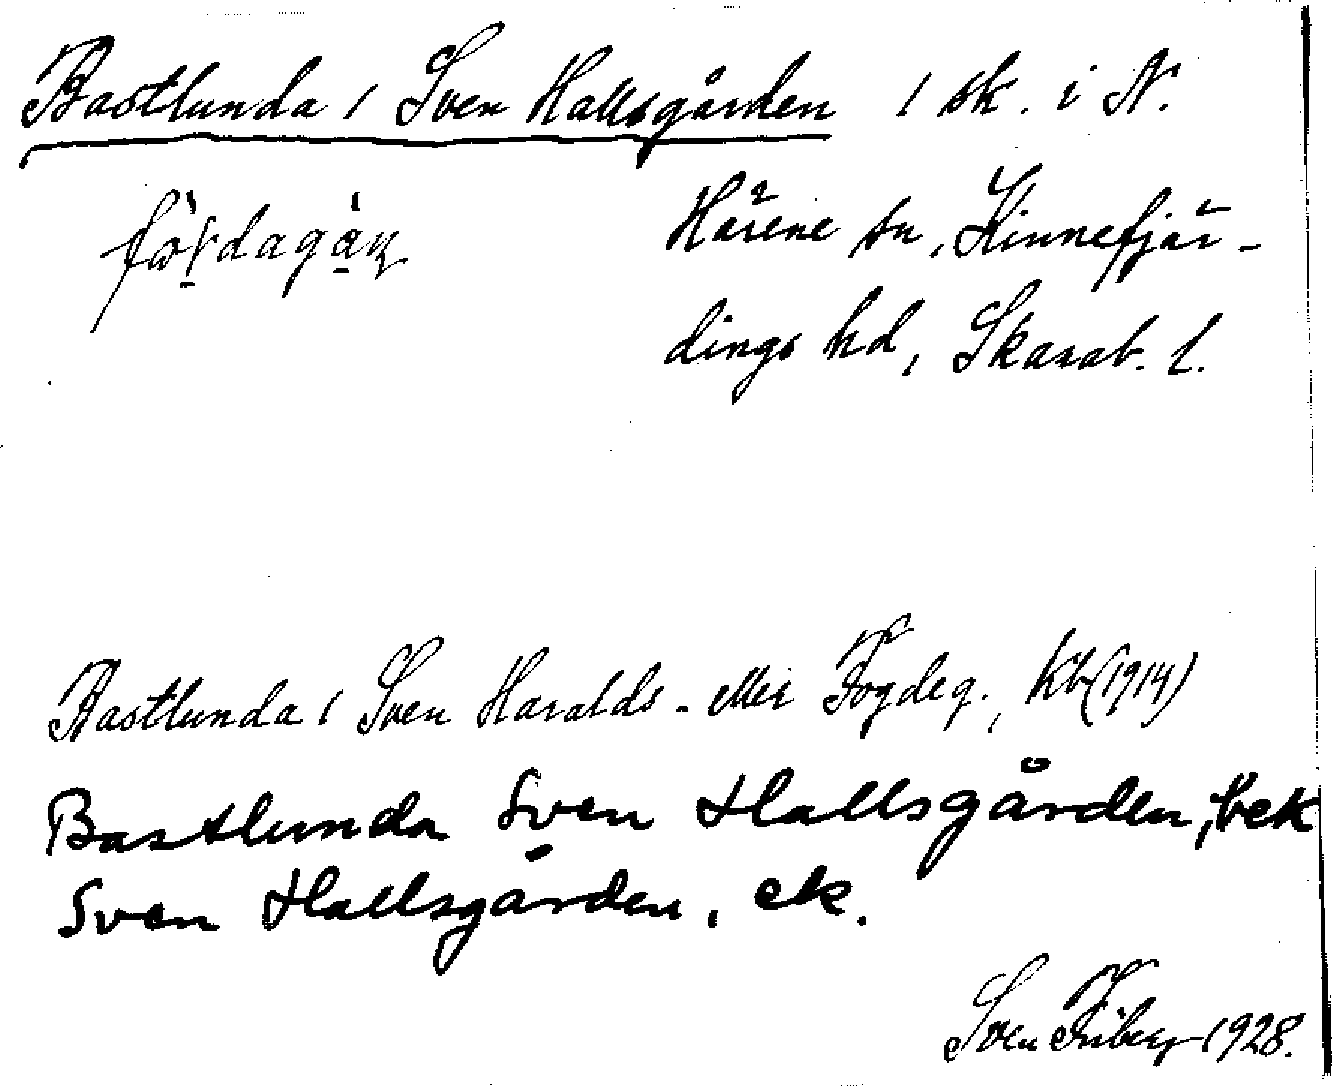 Bastlunda 1 Sven Hallsgården 1 sk. i N.
Härene sn, Kinnefjär-
dings hd, Skarab. l.
Bastlunda 1 Sven Haralds- eller Fogdeg., Kb (1914)
Bastlunda Sven Hallsgården, bek
Sven Hallsgården, ek.
Sven Friberg 1928.